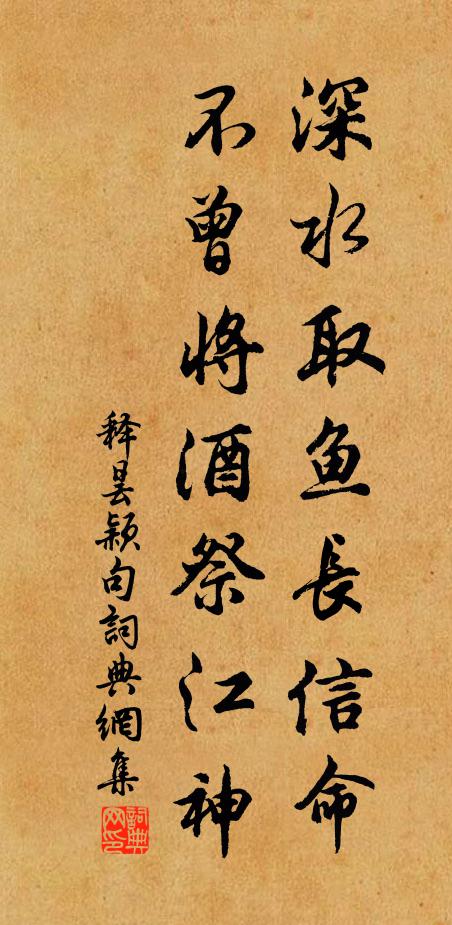 深水取鱼長信命
不曾将酒祭江神
释昙颖句詞典網集
詞典网印